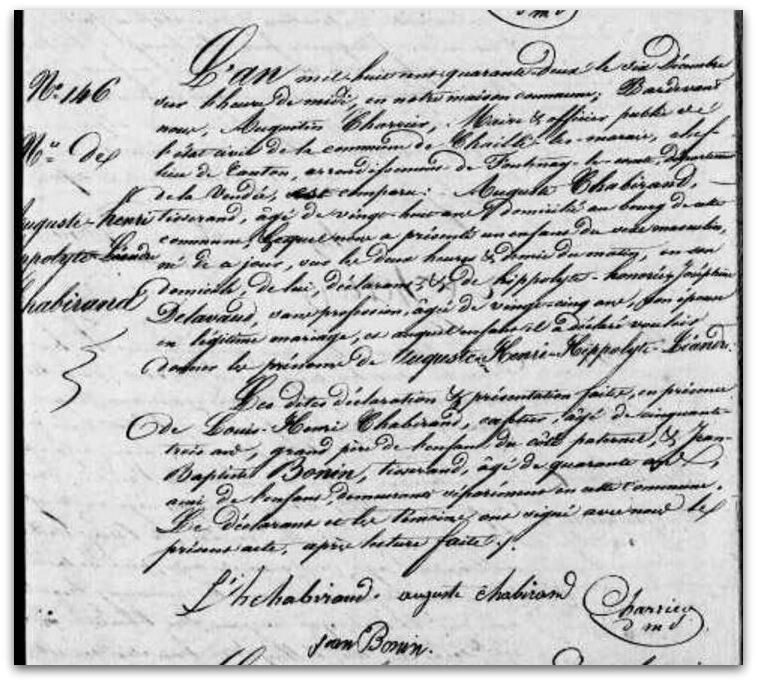 m d
N.º 146
N.ce de
Auguste-henri
hippolyte-Léandre
Chabirand
L'an mil huit cent quarante deux le six Décembre
sur l'heure de midi, en notre maison commune; Pardevant
nous, Augustin Charrier, Maire & officier public de
l'état civil de la commune de Chaillé-les-marais, chef-
lieu de Canton, arrondissement de Fontenay-le-comte, département
de la Vendée, est comparu: Auguste Chabirand,
tisserand, âgé de vingt-huit ans, domicilié au bourg de cette
commune, Lequel nous a présenté un enfant du sexe masculin,
né de ce jour, sur les deux heures & demie du matin, en son
domicile, de lui, déclarant, & de hippolyte-honorine Joséphine
Delavaud, sans profession, âgée de vingt-cinq ans, son épouse
en légitime mariage, et auquel enfant il a déclaré vouloir
donner les prénoms de Auguste-Henri-Hippolyte-Léandre.
Les dites déclaration & présentation faites, en présence
de Louis-Henri Chabirand, cafetier, âgé de cinquante-
trois ans, grand père de l'enfant du côté paternel, & Jean-
Baptiste Bonin, tisserand, âgé de quarante ans,
ami de l'enfant, demeurants séparément en cette commune.
Le déclarant et les témoins ont signé avec nous le
présent acte, après lecture faite./.
L'hchabiraud. auguste chabirand
Charrier
m d
jean Bonin.